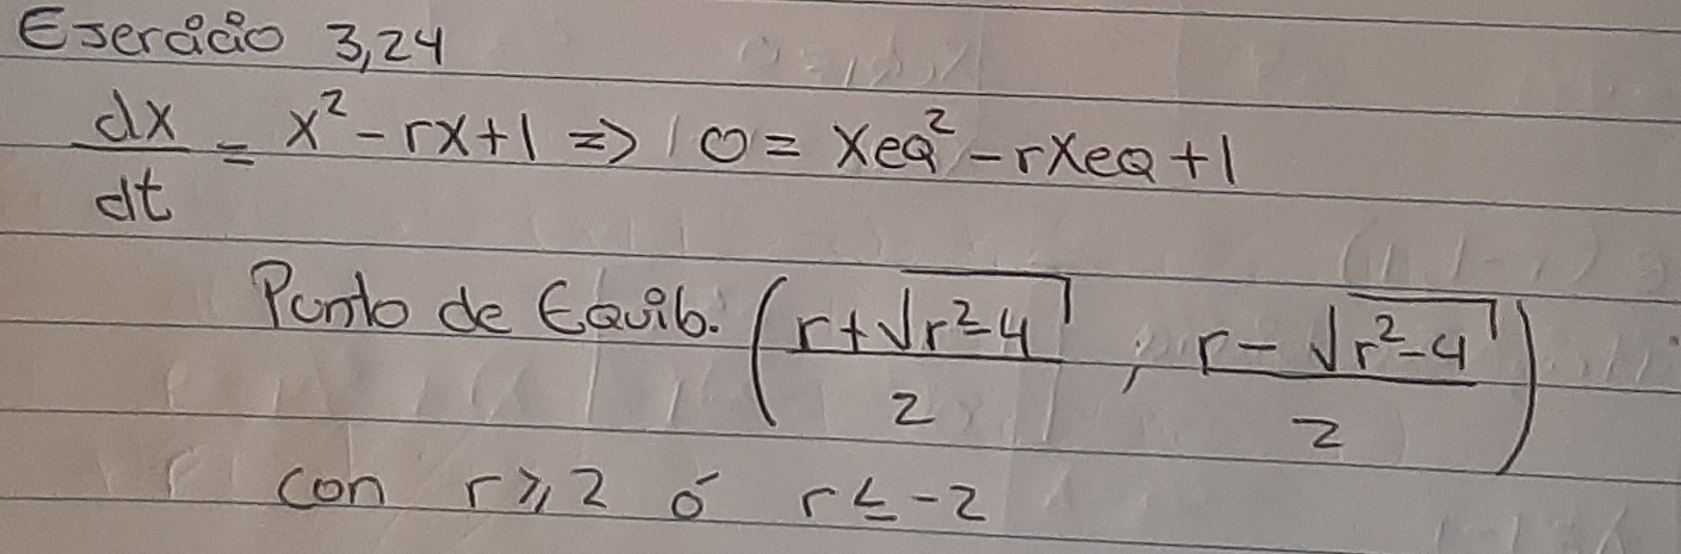 Ejercicio 3,24
dx/dt = x² - rx + 1 => 0 = xeq² - rxeq + 1
Punto de Equib. ( (r + √(r² - 4))/2 , (r - √(r² - 4))/2 )
con r ⩾ 2 ó r ≤ -2